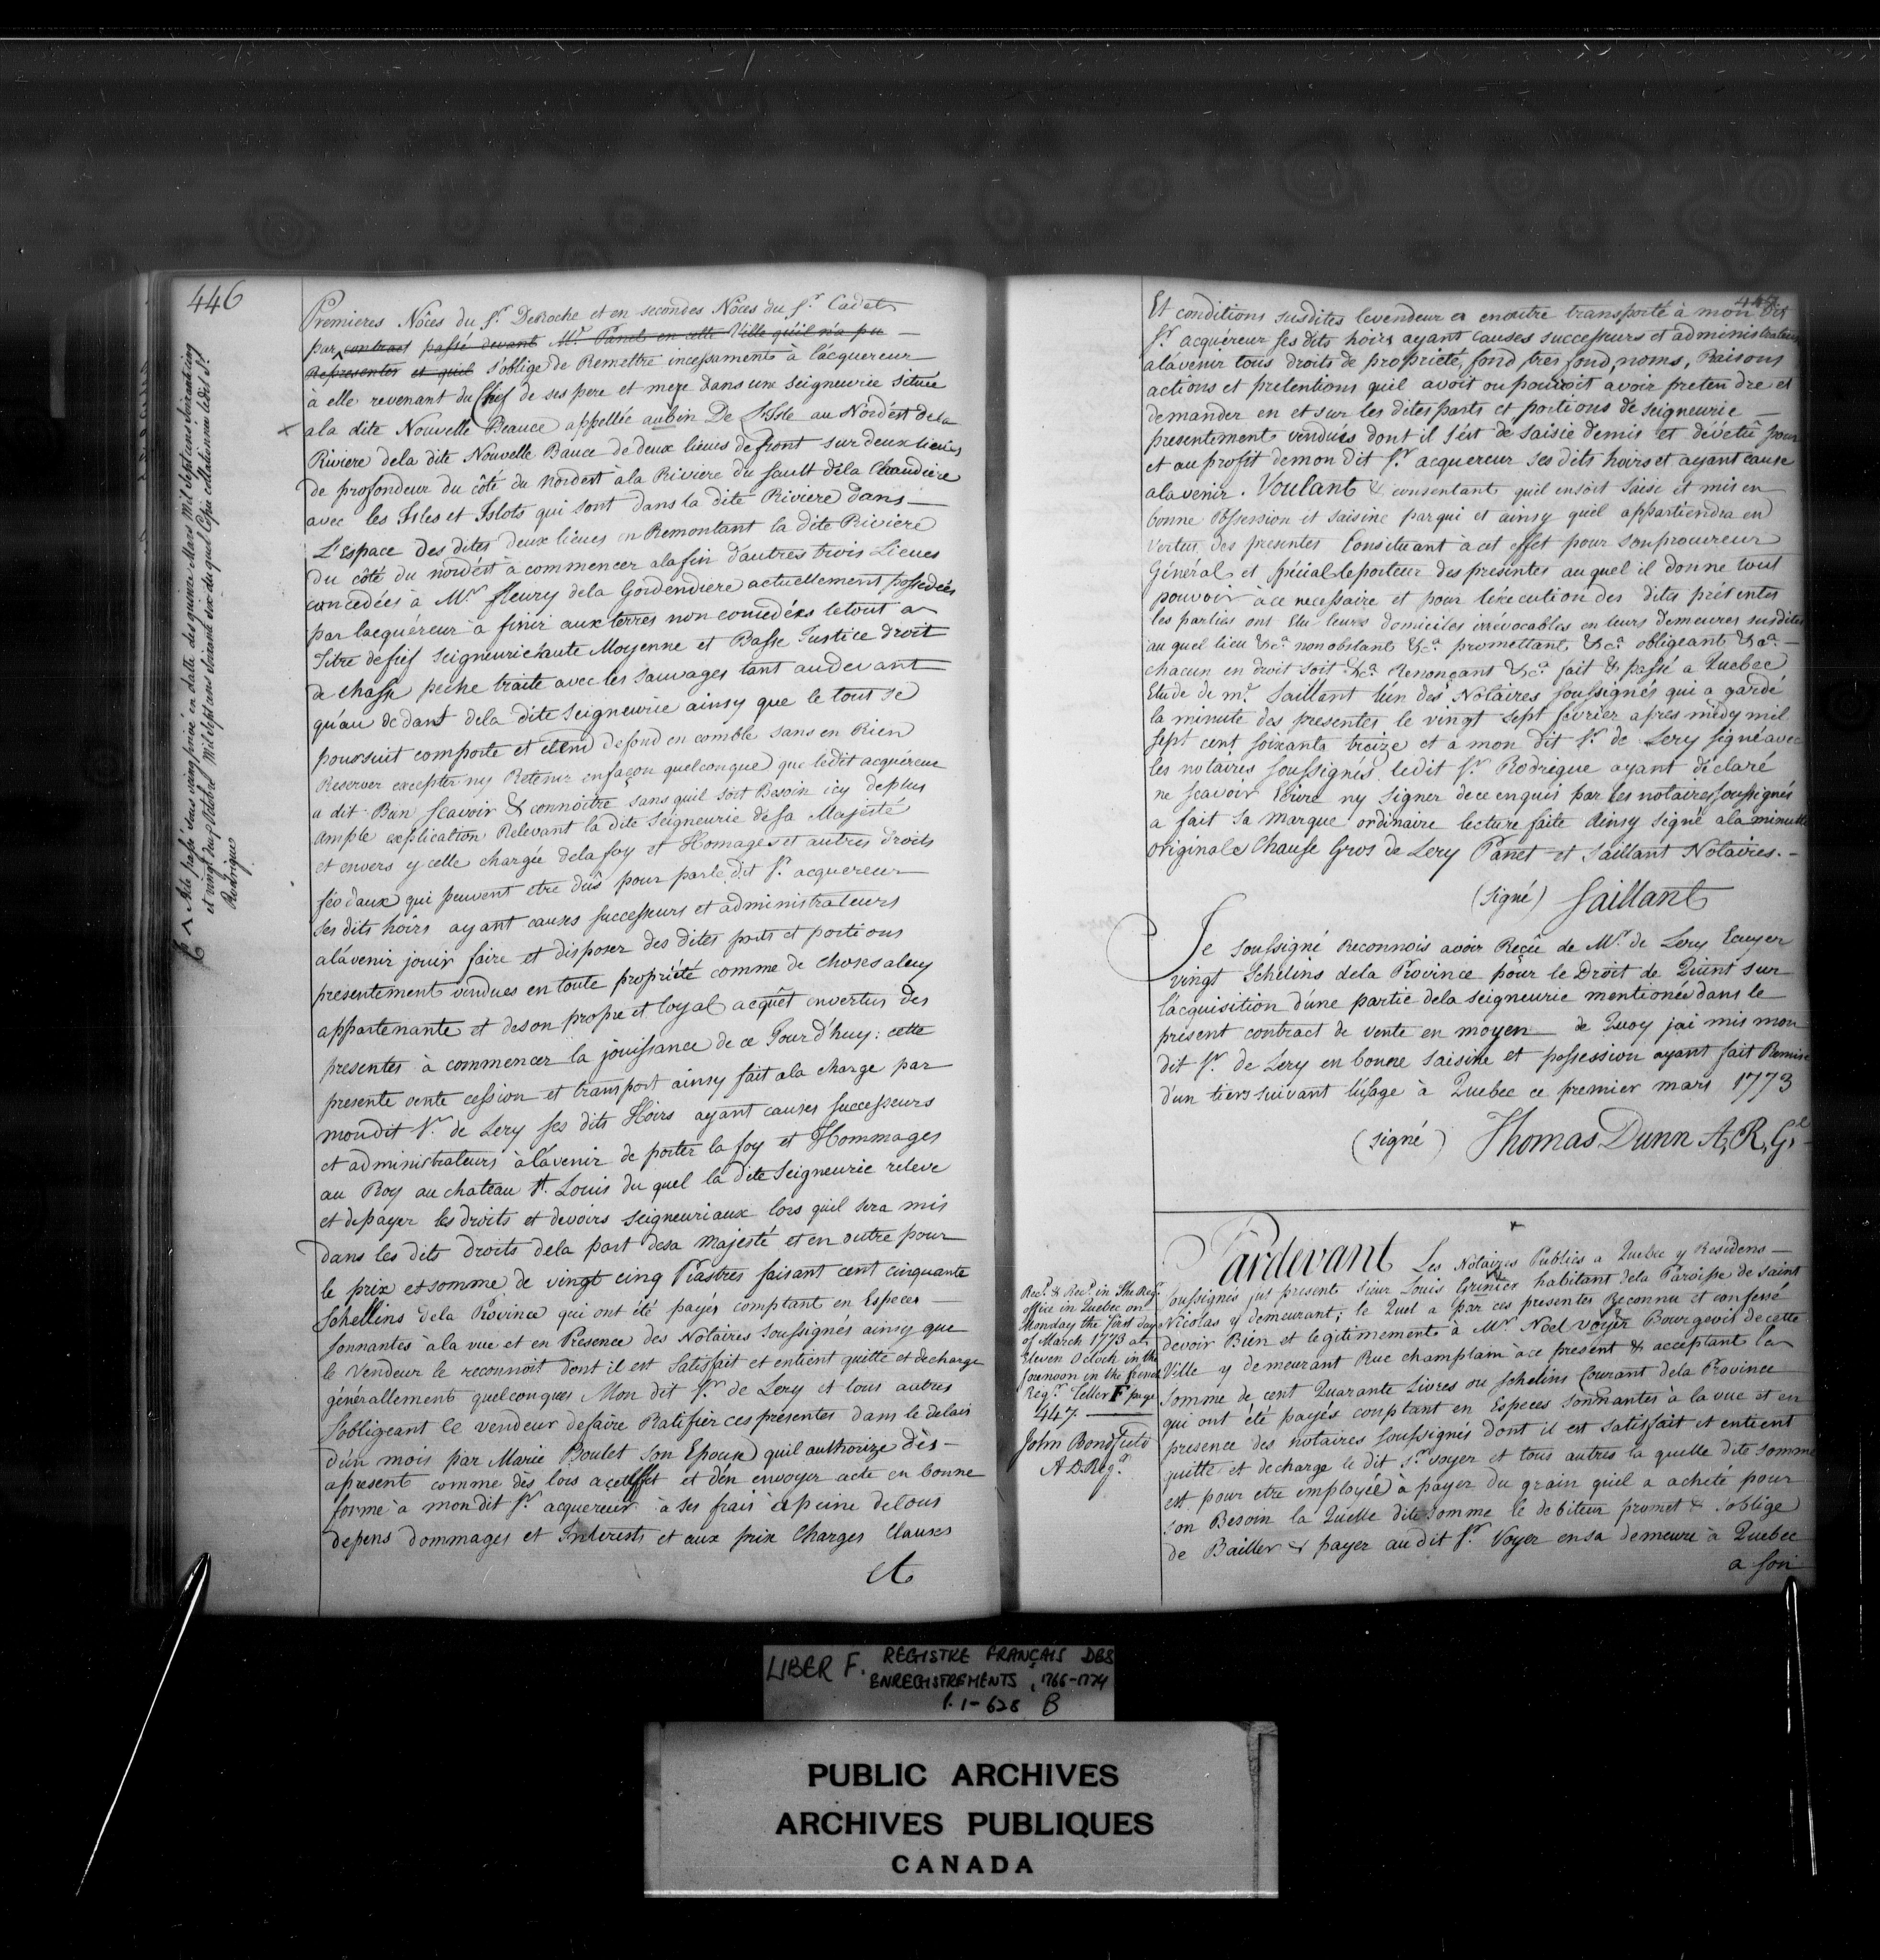 446
Premieres Nôces du Sr. DeRoche et en secondes Nôces du Sr. Cadet
par contract passé devant Mr. Panet en cette Ville qu'il n'a pu
Representer et quil s'oblige de Remettre incessament à lacquereur
à elle revenant du Chef de ses pere et mere dans une seigneurie située
ala dite Nouvelle Beauce appellée aubin De L'Isle au Nordest dela
Riviere dela dite Nouvelle Bauce de deux lieues de front sur deux lieües
de profondeur du côté du nordest à la Riviere du sault dela Chaudiere
avec les Isles et Islots qui sont dans la dite Riviere dans
L'Espace des dites deux lieues en Remontant la dite Riviere
du côté du nordest à commencer ala fin d'autres trois Lieues
concedées à Mr. fleury dela Gordendiere actuellement possedées
par lacquéreur à finir aux terres non concedées le tout a
Titre de fief seigneurie haute Moyenne et Basse Justice droit
de chasse peche traite avec les sauvages tant audevant
qu'au dedant dela dite seigneurie ainsy que le tout se
poursuit comporte et etend de fond en comble sans en Rien
Reserver excepter ny Retenir en façon quelconque que ledit acquéreur
a dit Bien scavoir & connoitre sans quil soit Besoin icy deplus
ample explication Relevant la dite seigneurie de sa Majesté
et envers y celle chargée dela foy et Homages et autres droits
féodaux qui peuvent etre dus pour par le dit Sr. acquereur
ses dits hoirs ayant causes successeurs et administrateurs
alavenir jouir faire et disposer des dites parts et portions
presentement vendues en toute propriété comme de choses aluy
appartenante et de son propre et loyal acquêt en vertus des
presentes à commencer la jouissance de ce Jourd'huy: cette
presente vente cession et transport ainsy fait ala charge par
mondit Sr. de Lery ses dits Hoirs ayant causes successeurs
et administrateurs àlavenir de porter la foy et Hommages
au Roy au chateau St. Louis du quel la dite Seigneurie releve
et depayer les droits et devoirs seigneuriaux lors quil sera mis
dans les dits droits dela part desa Majesté et en outre pour
le prix et somme de vingt cinq Piastres faisant cent cinquante
Schellins dela Province qui ont été payés comptant en Especes
sonnantes à la vue et en Présence des Notaires soussignés ainsy que
le Vendeur le reconnoit dont il est Satisfait et entient quitte et decharge
générallement quelconques Mon dit Sr. de Lery et tous autres
s'obligeant le vendeur de faire Ratifier ces présentes dans le delais
d'un mois par Marie Boulet son Epouse quil authorize dès
apresent comme dès lors a cet effet et d'en envoyer acte en bonne
forme à mondit Sr. acquereur à ses frais à peine de tous
depens dommages et Interests et aux prix Charges Clauses
et
Acte passé sous seing privé en datte des quinze Mars Mil Septcens Soixante cinq
et vingt du Octobre Mil sept cens soixante six duquel Copie collationnée le dit Sr.
Rodrigue
447
Et conditions susdites levendeur a enoutre transporté à mon dit
Sr. acquéreur ses dits hoirs ayant causes successeurs et administrateurs
alàvenir tous droits de propriété fond tres fond, noms, Raisons
actions et pretentions quil avoit ou pouroit avoir pretendre et
demander en et sur les dites parts et portions de seigneurie
presentement vendües dont il s'est de saisie demis et dévétu pour
et au profit demon dit Sr. acquereur ses dits hoirs et ayant cause
alavenir. Voulant & consentant quil ensoit saisi et mis en
bonne Possession et saisine par qui et ainsy quil appartiendra en
Vertus des presentes Consituant à cet effet pour son procureur
Général et spécial le porteur des presentes au quel il donne tout
pouvoir a ce necessaire et pour l'éxecution des dites présentes
les parties ont élu leurs domiciles irrévocables en leurs demeures susdites
au quel lieu &ca. non obstant &ca. promettant &ca. obligeant &ca.
chacun en droit soit &ca. Renonçant &ca. fait & passé a Quebec
Etude de mr. Saillant l'un des Notaires soussignés qui a gardé
la minute des presentes le vingt sept fevrier apres midy mil
sept cent soixante treize et a mon dit Sr. de Lery signé avec
les notaires soussignés. ledit Sr. Rodrigue ayant déclaré
ne scavoir Ecrire ny signer de ce enquis par les notaires soussignés
a fait sa marque ordinaire lecture faite ainsy signé ala minutte
originale Chausse Gros de Lery Panet et Saillant Notaires.
(signé) Saillant
Je soussigné Reconnois avoir Reçû de Mr. de Lery Ecuyer
vingt Schelins dela Province pour le Droit de Quint sur
l'acquisition d'une partie dela seigneurie mentionée dans le
présent contract de vente en moyen de Quoy j'ai mis mon
dit Sr. de Lery en bonne saisine et possession ayant fait Remise
d'un tiers suivant l'usage à Quebec ce premier mars 1773
(signé) Thomas Dunn A, R, Gl.
Recd. & Recd. in The Regrs
office in Quebec on
Monday the first day
of March 1773 at
Eleven Oclock in the
forenoon in the french
Regr. Letter F page
447.
John Bonsfield
A D. Regr.
Pardevant Les Notaires Publics a Quebec y Residens
soussignés fut present Sieur Louis Grinier habitant dela Paroisse de saint
Nicolas y demeurant; le Quel a par ces presentes Reconnu et confessé
devoir Bien et legitimement à Mr. Noel Voyer Bourgeois de cette
Ville y demeurant Rue champlain àce present & acceptant la
somme de cent Quarante Livres ou schelins Courant dela Province
qui ont été payés comptant en Especes sonnantes à la vue et en
presence des notaires soussignés dont il est satisfait et entient
quitte et decharge le dit Sr. voyer et tous autres la quelle dite somme
est pour etre employée à payer du grain quil a acheté pour
son Besoin la Quelle dite somme le debiteur promet & s'oblige
de Bailler & payer au dit Sr. Voyer en sa demeure à Quebec
a son
LIBER F. REGISTRE FRANÇAIS DES
ENREGISTREMENTS, 1766-1774
P. 1-628 B
PUBLIC ARCHIVES
ARCHIVES PUBLIQUES
CANADA